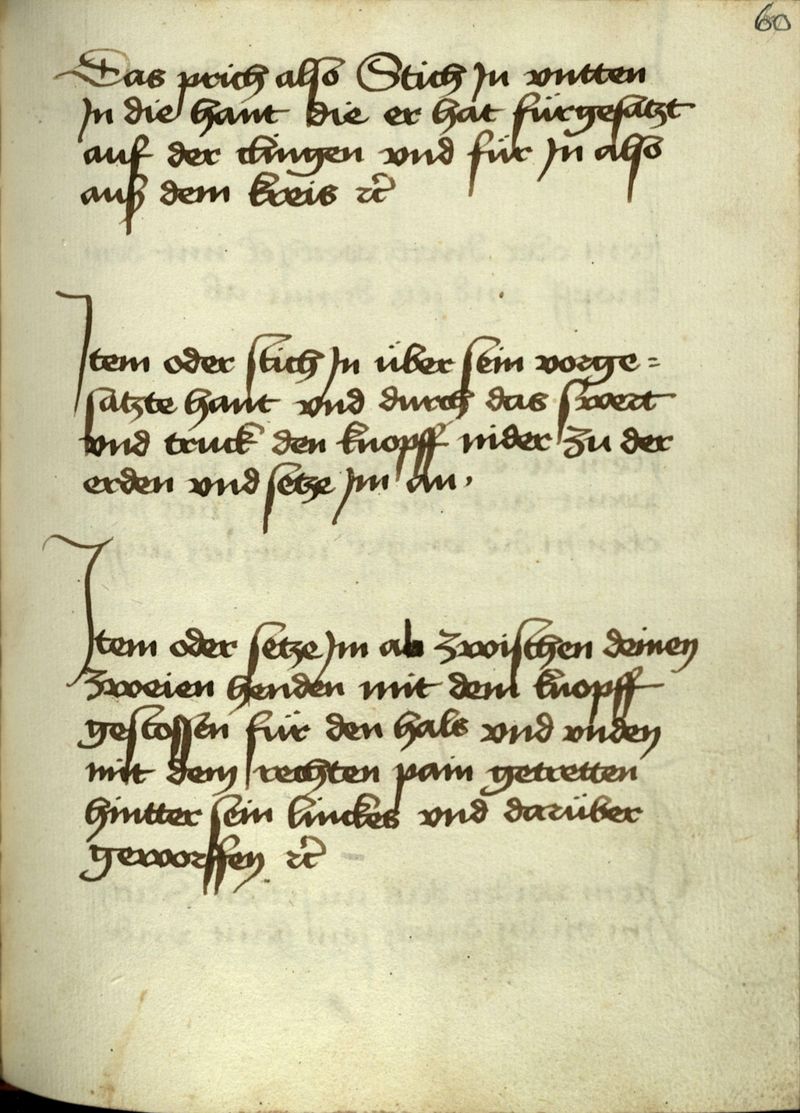 60
Das prich also Stich Jn vntten
Jn die hant die er hat fürgesatzt
auf der clingen vnd für Jn also
auß dem kreis ꝛc̃
Jtem oder stich Jn über sein vorge=
satzte hant vnd durch das swert
vnd truck den knopff nider zu der
erden vnd setze Jm an,
Jtem oder setze Jm ab zwischen deinen
zweien henden mit dem knopff
gestossen für den hals vnd vnden
mit dem rechten pain getretten
hintter sein linckes vnd darüber
geworffen ꝛc̃